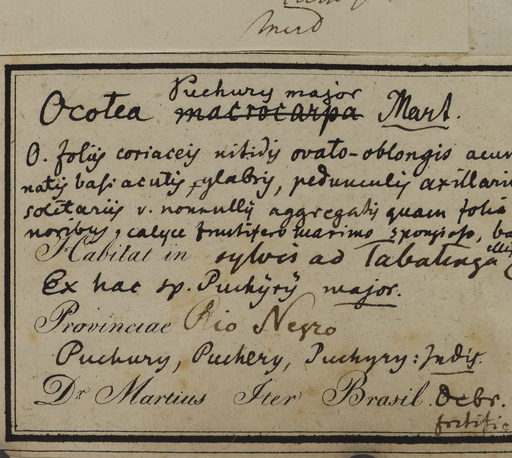 Merd
Puchury major
Ocotea macrocarpa Mart.
O. foliis coriaceis nitidis ovato-oblongis acum
natis basi acutis, glabris, pedunculis axillari
solitariis v. nonnullis aggregatis quam folia
noribus, calyce fructifero maximo spongioso, ba
Habitat in sylvis ad Tabatinga
Ex hac sp. Puchýrý major.
Provinciae Rio Negro
Puchury, Puchery, Puchyry: Indis.
Dr. Martius Iter Brasil. Dcbr.